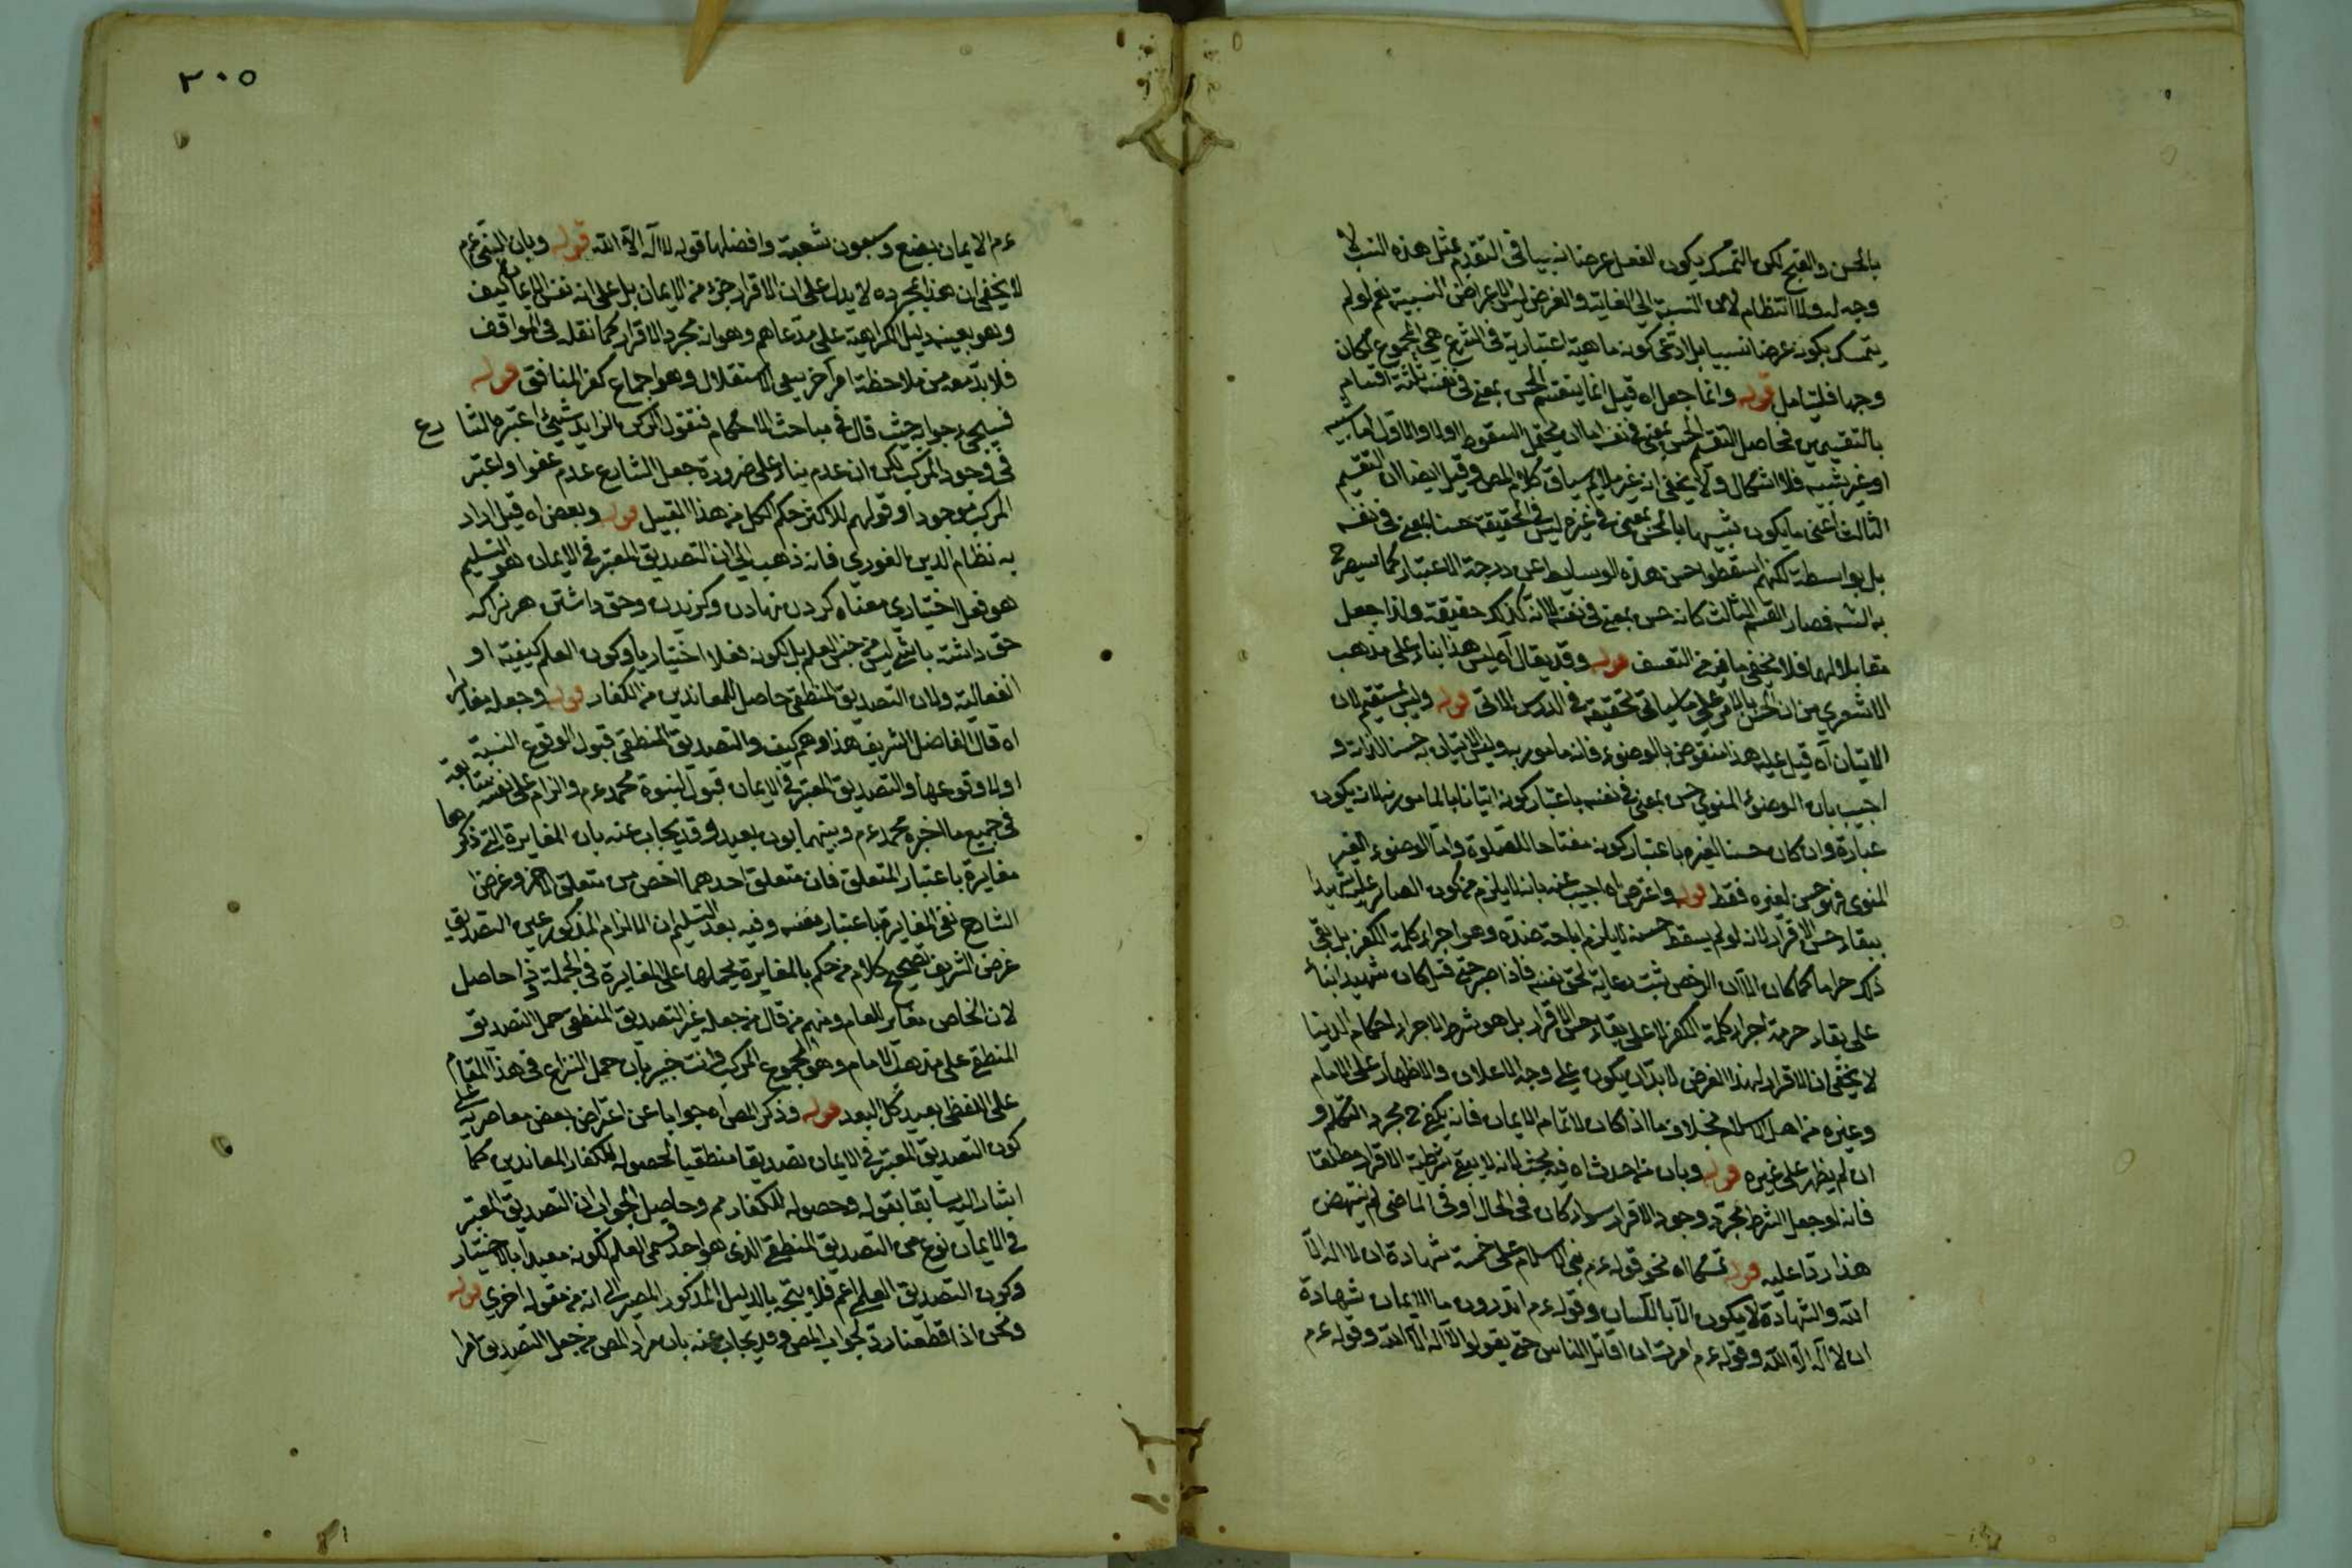 بالحسن والقبح لكن التمسك بكون الفعل عرضا نسبيا في التقدم بمثل هذه النسب لا
وجه له ولا انتظام لان النسبة الى الغاية والغرض ليس الاعراض النسبية نعم لو لم
يتمسك بكونه عرضا نسبيا بل ادعى كونه ماهية اعتبارية في الشرع هي المجموع لكان
وجها فليتأمل قوله وانما جعل اه قيل انما ينقسم الحسن بمعنى في نفسه ثلثة اقسام
بالتقسيمين فحاصل التقسيم الحسن بمعنى في نفسه اما ان يحتمل السقوط اولا والاول اما شبيه
او غير شبيه فلا اشكال ولا يخفى انه غير ملايم سياق كلام المص وقيل ايضا ان التقسيم
الثالث اعنى ما يكون شبيها بالحسن بمعنى في غيره ليس في الحقيقة حسنا بمعنى في نفسه
بل بواسطة لكنهم اسقطوا حسن هذه الوسايط عن درجة الاعتبار كما سيصرح
به الش فصار القسم الثالث كانه حسن بمعنى في نفسه لا انه كذلك حقيقة ولذا جعل
مقابلا لهما فلا يخفى ما فيه من التعسف قوله وقد يقال آه ليس هذا بناء على مذهب
الاشعري من ان الحسن بالامر على ما سيأتي تحقيقه في الدرس الاتى قوله وليس بمستقيم لان
الاتيان آه قيل عليه هذا منقوض بالوضوء فانه مامور به وليس الاتيان به حسنا لذاته و
اجيب بان الوضوء المنوي حسن بمعنى في نفسه باعتبار كونه اتيانا بالمامور به لانه يكون
عبادة وان كان حسنا لغيره باعتبار كونه مفتاحا للصلوة واما الوضوء الغير
المنوى فهو حسن لغيره فقط قوله واعترض اه اجيب عنه بانه لا يلزم من كون الصابر عليه شهيدا
بقاء حسن الاقرار لانه لو لم يسقط حسنه لا يلزم اباحة ضده وهو اجراء كلمة الكفر بل بقى
ذلك حراما كما كان الا ان الرخص ثبت رعاية لحق نفسه فاذا صبر حتى قتل كان شهيدا بناء
على بقاء حرمة اجراء كلمة الكفر لا على بقاء حسن الاقرار بل هو شرط لاجراء احكام الدنيا
لا يخفى ان الاقرار لهذا الغرض لا بد ان يكون على وجه الاعلان والاظهار على الامام
وغيره من اهل الاسلام بخلاف ما اذا كان لاتمام الايمان فانه يكفى مجرد التكلم و
ان لم يظهر على غيره قوله وبان من احدث اه فيه بحث لانه لا يبقى شرطية الاقرار مطلقا
فانه لو جعل الشرط مجرد وجود الاقرار سواء كان في الحال او في الماضى لم ينتهض
هذا ردا عليه قوله تمسكا اه نحو قوله عم بنى الاسلام على خمسة شهادة ان لا اله الا
الله والشهادة لا يكون الا باللسان وقوله عم اتدرون ما الايمان شهادة
ان لا اله الا الله وقوله عم امرت ان اقاتل الناس حتى يقولوا لا اله الا الله وقوله عم
٣٠٥
عم الايمان بضع وسبعون شعبة وافضلها قوله لا اله الا الله قوله وبان النبى عم
لا يخفى ان هذا بمجرده لا يدل على ان الاقرار جزء من الايمان بل على انه نفس الايمان كيف
وهو بعينه دليل الكرامية على مدعاهم وهو انه مجرد الاقرار كما نقله في المواقف
فلا بد معه من ملاحظة امر آخر ينفى الاستقلال وهو اجماع كفر المنافق قوله
فسيجيء جوابه حيث قال في مباحث الاحكام فنقول الركن الزايد شيئ اعتبره الشا رع
في وجود المركب لكن ان عدم بناء على ضرورة جعل الشارع عدمه عفوا واعتبر
المركب موجودا وقولهم للاكثر حكم الكل من هذا القبيل قوله وبعض اه قيل اراد
به نظام الدين الغوري فانه ذهب الى ان التصديق المعتبر في الايمان هو التسليم
هو فعل اختياري معناه كردن نهادن وكرديدن وحق داشتن هر نراكه
حق داشته باشي ليس من جنس العلم بل لكونه فعلا اختياريا وكون العلم كيفية او
انفعالية ولان التصديق المنطقى حاصل للمعاندين من الكفار قوله وجعله مغايرا
اه قال الفاضل الشريف هذا وهم كيف والتصديق المنطقى قبول الوقوع النسبة
او لا وقوعها والتصديق المعتبر في الايمان قبول لنبوة محمد عم والزام على نفسه متابعة
في جميع ما اخبره محمد عم وبينهما بون بعيد وقد يجاب عنه بان المغايرة التي ذكرها
مغايرة باعتبار المتعلق فان متعلق احدهما اخص من متعلق الاخر وغرض
الشارح نفى المغايرة باعتبار نفسه وفيه بعد التسليم ان الالزام المذكور عين التصديق
غرض الشريف تصحيح كلام من حكم بالمغايرة بحملها على المغايرة في الجملة وذا حاصل
لان الخاص مغاير للعام ومنهم من قال من جعله غير التصديق المنطقى حمل التصديق
المنطقى على مذهب الامام وهو المجموع المركب وانت خبير بان حمل النزاع في هذا المقام
على اللفظى بعيد كل البعد قوله وذكر المص اه جوابا عن اعتراض بعض معاصريه على
كون التصديق المعتبر في الايمان تصديقا منطقيا لحصوله للكفار المعاندين كما
اشار اليه سابقا بقوله وحصوله للكفار مم وحاصل الجواب ان التصديق المعتبر
في الايمان نوع من التصديق المنطقى الذى هو احد قسمى العلم لكونه مقيدا بالاختيار
وكون التصديق العلمى اعم فلا يتجه بالدليل المذكور المصير الى انه من مقولة اخري قوله
ونحن اذا قطعنا رد لجواب المص وقد يجاب عنه بان مراد المص من جعل التصديق امرا